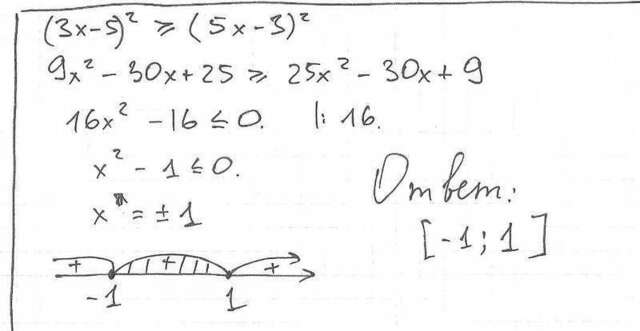 (3x-5)² ≥ (5x-3)²
9x² - 30x + 25 ≥ 25x² - 30x + 9
16x² - 16 ≤ 0. |: 16.
x² - 1 ≤ 0.
x = ± 1
Ответ:
[-1; 1]
+ + +
-1 1